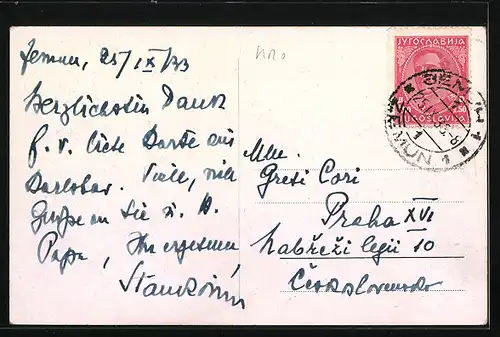 Zemun, 25/IX/33
Herzlichsten Dank
f. v. liebe Karte aus
Daruvar. Viele, viele
Grüße an Sie u. H.
Papa, Ihr ergebener
КПо
ЈУГОСЛАВИЈА
JUGOSLAVIJA
ЗЕМУН 1
ZEMUN 1
Mlle.
Greti Cori
Praha XVI
Nábřeží legií 10
Československo